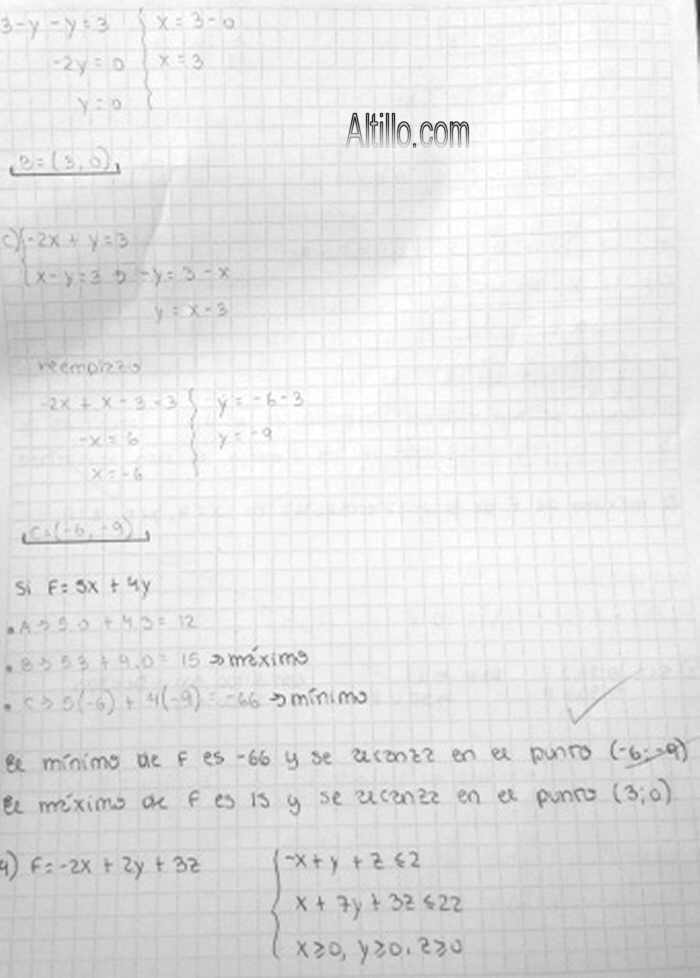 3-y-y=3 { x=3-0
-2y=0 x=3
y=0
Altillo.com
B=(3,0)
c) { -2x+y=3
x-y=3 → -y=3-x
y=x-3
reemplazo
-2x+x-3=3 { y=-6-3
-x=6 y=-9
x=-6
C=(-6,-9)
Si F=5x+4y
• A→5.0+4.3=12
• B→5.3+4.0=15 ⇒máximo
• C→5(-6)+4(-9)=-66 ⇒mínimo
El mínimo de F es -66 y se alcanza en el punto (-6;-9)
El máximo de F es 15 y se alcanza en el punto (3;0)
4) F=-2x+2y+3z { -x+y+z≤2
x+7y+3z≤22
x≥0, y≥0, z≥0